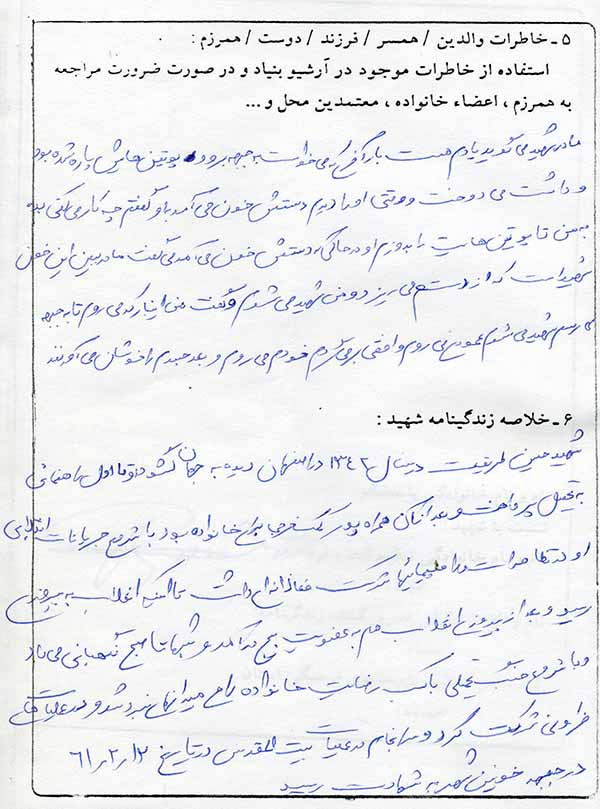 ۵ ـ خاطرات والدین / همسر / فرزند / دوست / همرزم :
استفاده از خاطرات موجود در آرشیو بنیاد و در صورت ضرورت مراجعه
به همرزم ، اعضاء خانواده ، معتمدین محل و ...
مادر شهید می گوید یادم هست بار آخر که می خواست به جبهه برود پوتین هایش پاره شده بود
و داشت می دوخت وقتی او را دیدم دستش خون می آمد باو گفتم چه کار می کنی بده
به من تا پوتین هایت را بدوزم او در حالیکه دستش خون می آمد می گفت مادر ببین این خون
شهید است که از دستم می ریزد و من شهید می شوم و گفت من اینبار که می روم تا به جبهه
می رسم شهید می شوم عمودی می روم و افقی برمی گردم خودم می روم و بعد جسدم را خودشان می آورند
۶ ـ خلاصه زندگینامه شهید :
شهید حسین طریقت در سال ۱۳۴۲ در اصفهان دیده به جهان گشود و تا اول راهنمائی
به تحصیل پرداخت و بعد از آن همراه پدر کمک خرجی برای خانواده بود با شروع جریانات انقلابی
او در تظاهرات و راهپیمائیها شرکت فعالانه ای داشت تا آنکه انقلاب به پیروزی
رسید و بعد از پیروزی انقلاب هم به عضویت بسیج در آمد و شبها تا صبح نگهبانی می داد
و با شروع جنگ تحمیلی با کسب رضایت خانواده راهی میدانهای نبرد شد و در عملیات های
فراوانی شرکت کرد و سرانجام در عملیات بیت المقدس در تاریخ ۶۱/۲/۱۲
در جبهه خونین شهر به شهادت رسید